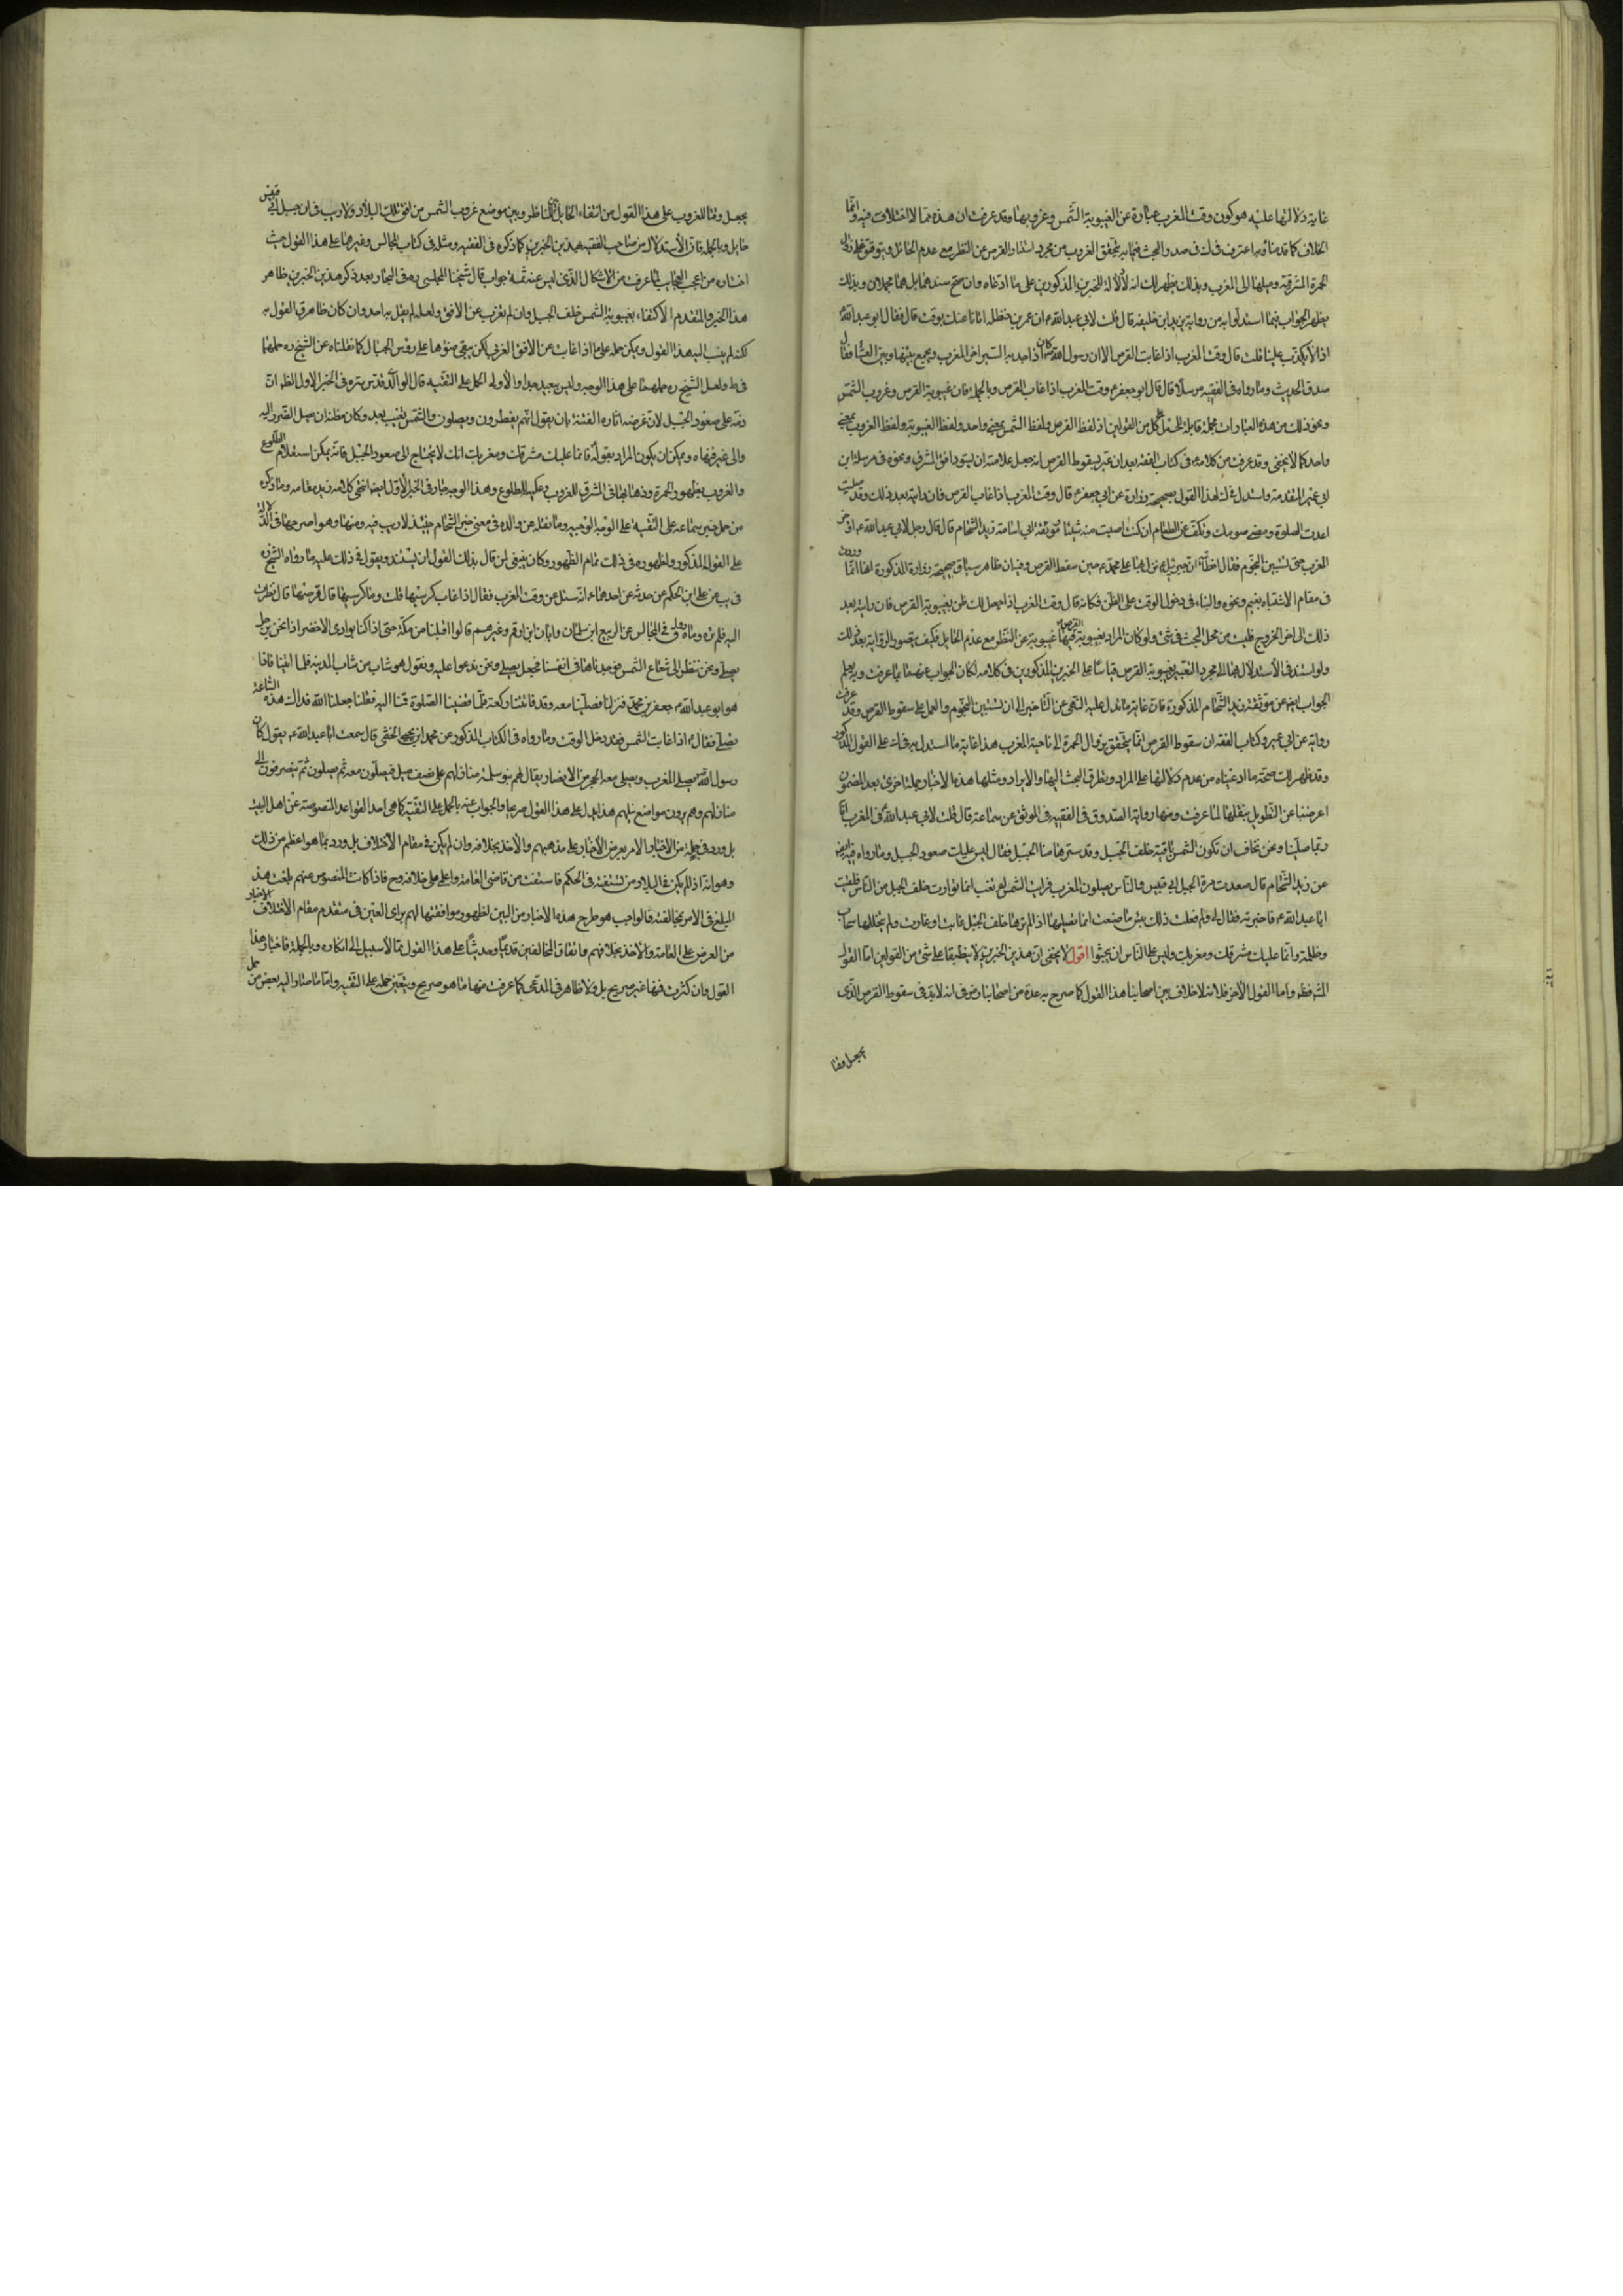 غاية دلالتها عليه هو كون وقت المغرب عبارة عن الغيبوبة الشمس وغروبها وقد عرفت ان هذه مما لا اختلاف فيه وانما
الخلاف كما قدمنا وبه اعترف في صدر البحث فيما به يتحقق الغروب من مجرد استتار القرص عن النظر مع عدم الحائل ويتوقف على زوال
الحمرة المشرقية وميلها الى المغرب وبذلك يظهر لك انه لا دلالة للخبرين المذكورين على ما ادعاه وان صح سندهما بل هما مجملان وبذلك
يظهر الجواب فيما استدلوا به من رواية يزيد ابن خليفة قال قلت لابي عبد الله ع ان عمر بن حنظلة اتانا عنك بوقت قال فقال ابو عبد الله ع
اذا لا يكذب علينا قلت قال وقت المغرب اذا غابت القرص الا ان رسول الله كان اذا جد به السير اخر المغرب ويجمع بينها وبين العشاء فقال
صدق الحديث وما رواه في الفقيه مرسلا قال قال ابو جعفر ع وقت المغرب اذا غاب القرص وبالجملة فان غيبوبة القرص وغروب الشمس
ونحو ذلك من هذه العبارات مجملة قابلة للحمل على كل من القولين اذ لفظ القرص ولفظ الشمس بمعنى واحد ولفظ الغيبوبة ولفظ الغروب بمعنى
واحد كما لا يخفى وقد عرفت من كلامه في كتاب الفقه بعد ان عبر بسقوط القرص انه جعل علامته ان يسود افق المشرق ونحوه في مرسلة ابن
ابي عمير المتقدمة واستدل في ك لهذا القول بصحيحة زرارة عن ابي جعفر ع قال وقت المغرب اذا غاب القرص فان رايته بعد ذلك وقد صليت
اعدت الصلوة ومضى صومك وتكف عن الطعام ان كنت اصبت منه شيئا موثقة ابي اسامة زيد الشحام قال قال رجل لابي عبد الله ع اؤخر
المغرب حتى تستبين النجوم فقال خطابية ان جبرئيل ع نزل بها على محمد ص حين سقط القرص وفيه ان ظاهر سياق صحيحة زرارة المذكورة انها انما وردت
في مقام الاشتباه بغيم ونحوه والبناء في دخول الوقت على الظن فكانه قال وقت المغرب اذا حصل لك ظن بغيبوبة القرص فان رايته بعد
ذلك الى اخر الخروج فليست من محل البحث في شئ ولو كان المراد بغيبوبة القرص فيها غيبوبته عن النظر مع عدم الحايل فكيف يتصور الرؤية بعد ذلك
ولو استند في الاستدلال بها الى مجرد التعبير بغيبوبة القرص قياسا على الخبرين المذكورين في كلامه لكان الجواب عنهما بما عرفت وبه يعلم
الجواب ايضا عن موثقة زيد الشحام المذكورة فان غاية ما تدل عليه النهى عن التاخير الى ان تستبين النجوم والعمل على سقوط القرص وقد عرفت
رواية عن ابي عمير وكتاب الفقه ان سقوط القرص انما يتحقق بزوال الحمرة الى ناحية المغرب هذا غاية ما استدل به في ك على القول المذكور
وقد ظهر لك صحة ما ادعيناه من عدم دلالتها على المراد وتطرق البحث اليها والايراد ومثلها هذه الاخبار جملة اخرى بعد المضمون
اعرضنا عن التطويل بنقلها لما عرفت ومنها رواية الصدوق في الفقيه في الموثق عن سماعة قال قلت لابي عبد الله ع في المغرب انا
ربما صلينا ونحن نخاف ان تكون الشمس باقية خلف الجبل وقد سترها منا الجبل فقال ليس عليك صعود الجبل وما رواه فيه ايضا
عن زيد الشحام قال صعدت مرة الجبل ابي قبيس والناس يصلون المغرب فرايت الشمس لم تغب انما توارت خلف الجبل من الناس فلقيت
ابا عبد الله ع فاخبرته فقال لي ولم فعلت ذلك بئس ما صنعت انما تصليها اذا لم ترها خلف الجبل غابت او غارت ولم يتجللها سحاب
وظلمة وانما عليك مشرقك ومغربك وليس على الناس ان يبحثوا اقول لا يخفى ان هذين الخبرين لا ينطبقا على شئ من القولين اما القول
المشهور فظ واما القول الاخر فلانه لا خلاف بين اصحابنا هذا القول كما صرح به عدة من اصحابنا رض في انه لا بد في سقوط القرص الذى
يجعل وقتا
يجعل وقتا للغروب على هذا القول من انتفاء الحايل بين الناظر وبين موضع غروب الشمس من افق تلك البلاد ولا ريب في ان جبل ابي قبيس
حايل وبالجملة فان الاستدلال من صاحب الفقيه بهذين الخبرين كما ذكره في الفقيه ومثله في كتاب المجالس وغيرهما على هذا القول حيث
اختاره من اعجب العجاب لما عرفت من الاشكال الذى ليس عنه ثمة جواب قال شيخنا المجلسى ره في البحار بعد ذكر هذين الخبرين ظاهر
هذا الخبر والمتقدم الاكتفاء بغيبوبة الشمس خلف الجبل وان لم تغرب عن الافق ولعله لم يقل به احد وان كان ظاهر ق القول به
لكنه لم ينسب اليه هذا القول ويمكن حمله على ما اذا غابت عن الافق الغربي لكن يبقى ضوءها على رؤس الجبال كما نقلناه عن الشيخ ره حملهما
في ط ولعل الشيخ ره حملهما على هذا الوجه وليس ببعيد جدا والاولى الحمل على التقية قال الوالد قدس سره في الخبر الاول الظ ان
ذمه على صعود الجبل لان غرضه اثارة الفتنة بان يقول انهم يفطرون ويصلون والشمس لم تغب بعد وكان مظنة ان يصل الضرر اليه
والى غيره فنهاه ويمكن ان يكون المراد بقوله ع فانما عليك مشرقك ومغربك انك لا يحتاج الى صعود الجبل فانه يمكن استعلام الطلوع
والغروب بظهور الحمرة وذهابها في المشرق للغروب وعكسه للطلوع وهذا الوجه جار في الخبر الاول ايضا انتهى كلامه زيد مقامه وما ذكره
من حمل خبر سماعة على التقية على الوجه الوجيه وما نقله عن والده في معنى خبر الشحام جيد لا ريب فيه ومنها وهو اصرحها في الدلالة
على القول المذكور واظهره في ذلك تمام الظهور وكان ينبغى لمن قال بذلك القول ان يستند ويعول في ذلك عليه ما رواه الشيخ ره
في يب عن على ابن الحكم عن حدثه عن احدهما ع انه سئل عن وقت المغرب فقال اذا غاب كرسيها قلت وما كرسيها قال قرصها قال نظرت
اليه فلم تره وما رواه في المجالس عن الربيع ابن سليمان وابان ابن ارقم وغيرهم قالوا اقبلنا من مكة حتى اذا كنا بوادى الاخضر اذا نحن برجل
يصلى ونحن ننظر الى شعاع الشمس فوجدنا في انفسنا فجعل يصلى ونحن ندعوا عليه ونقول هو شاب من شباب المدينة فلما اتيناه فاذا
هو ابو عبد الله ع جعفر بن محمد فنزلنا فصلينا معه وقد فاتتنا ركعة فلما قضينا الصلوة قمنا اليه فقلنا جعلنا الله فداك هذه الساعة
تصلى فقال ع اذا غابت الشمس فقد دخل الوقت وما رواه في الكتاب المذكور عن محمد ابن يحيى الخثعمى قال سمعت ابا عبد الله ع يقول كان
رسول الله ص يصلى المغرب ويصلى معه الحي من الانصار يقال لهم بنو سلمة منازلهم على نصف ميل فيصلون معه ثم ينصرفون الى
منازلهم وهم يرون مواضع نبلهم هذا يدل على هذا القول صريحا والجواب عنه بالحمل على التقية كما هي احد القواعد المنصوصة عن اهل البيت
بل ورد في جملة من الاخبار الامر بعرض الاخبار على مذهبهم والاخذ بخلافه وان لم يكن في مقام الاختلاف بل ورد بما هو اعظم من ذلك
وهو انه اذا لم يكن في البلاد من تستفته في الحكم فاستفت من قاضى العامة واعمل على خلافه وح فاذا كانت النصوص عنهم بلغت هذا
المبلغ في الامر بمخالفته فالواجب هو طرح هذه الاخبار من البين لظهور موافقتها لهم براى العين في متقدم مقام الاختلاف الاخبار
من العرض على العامة والاخذ بخلافهم واتفاق المخالفين قديما وحديثا على هذا القول مما لا سبيل الى انكاره وبالجملة فاخبار هذا
القول وان كثرت فمنها غير صريح بل ولا ظاهر في المدعى كما عرفت منها ما هو صريح ويتعين حمله على التقية واما ما صار اليه بعض من حمل